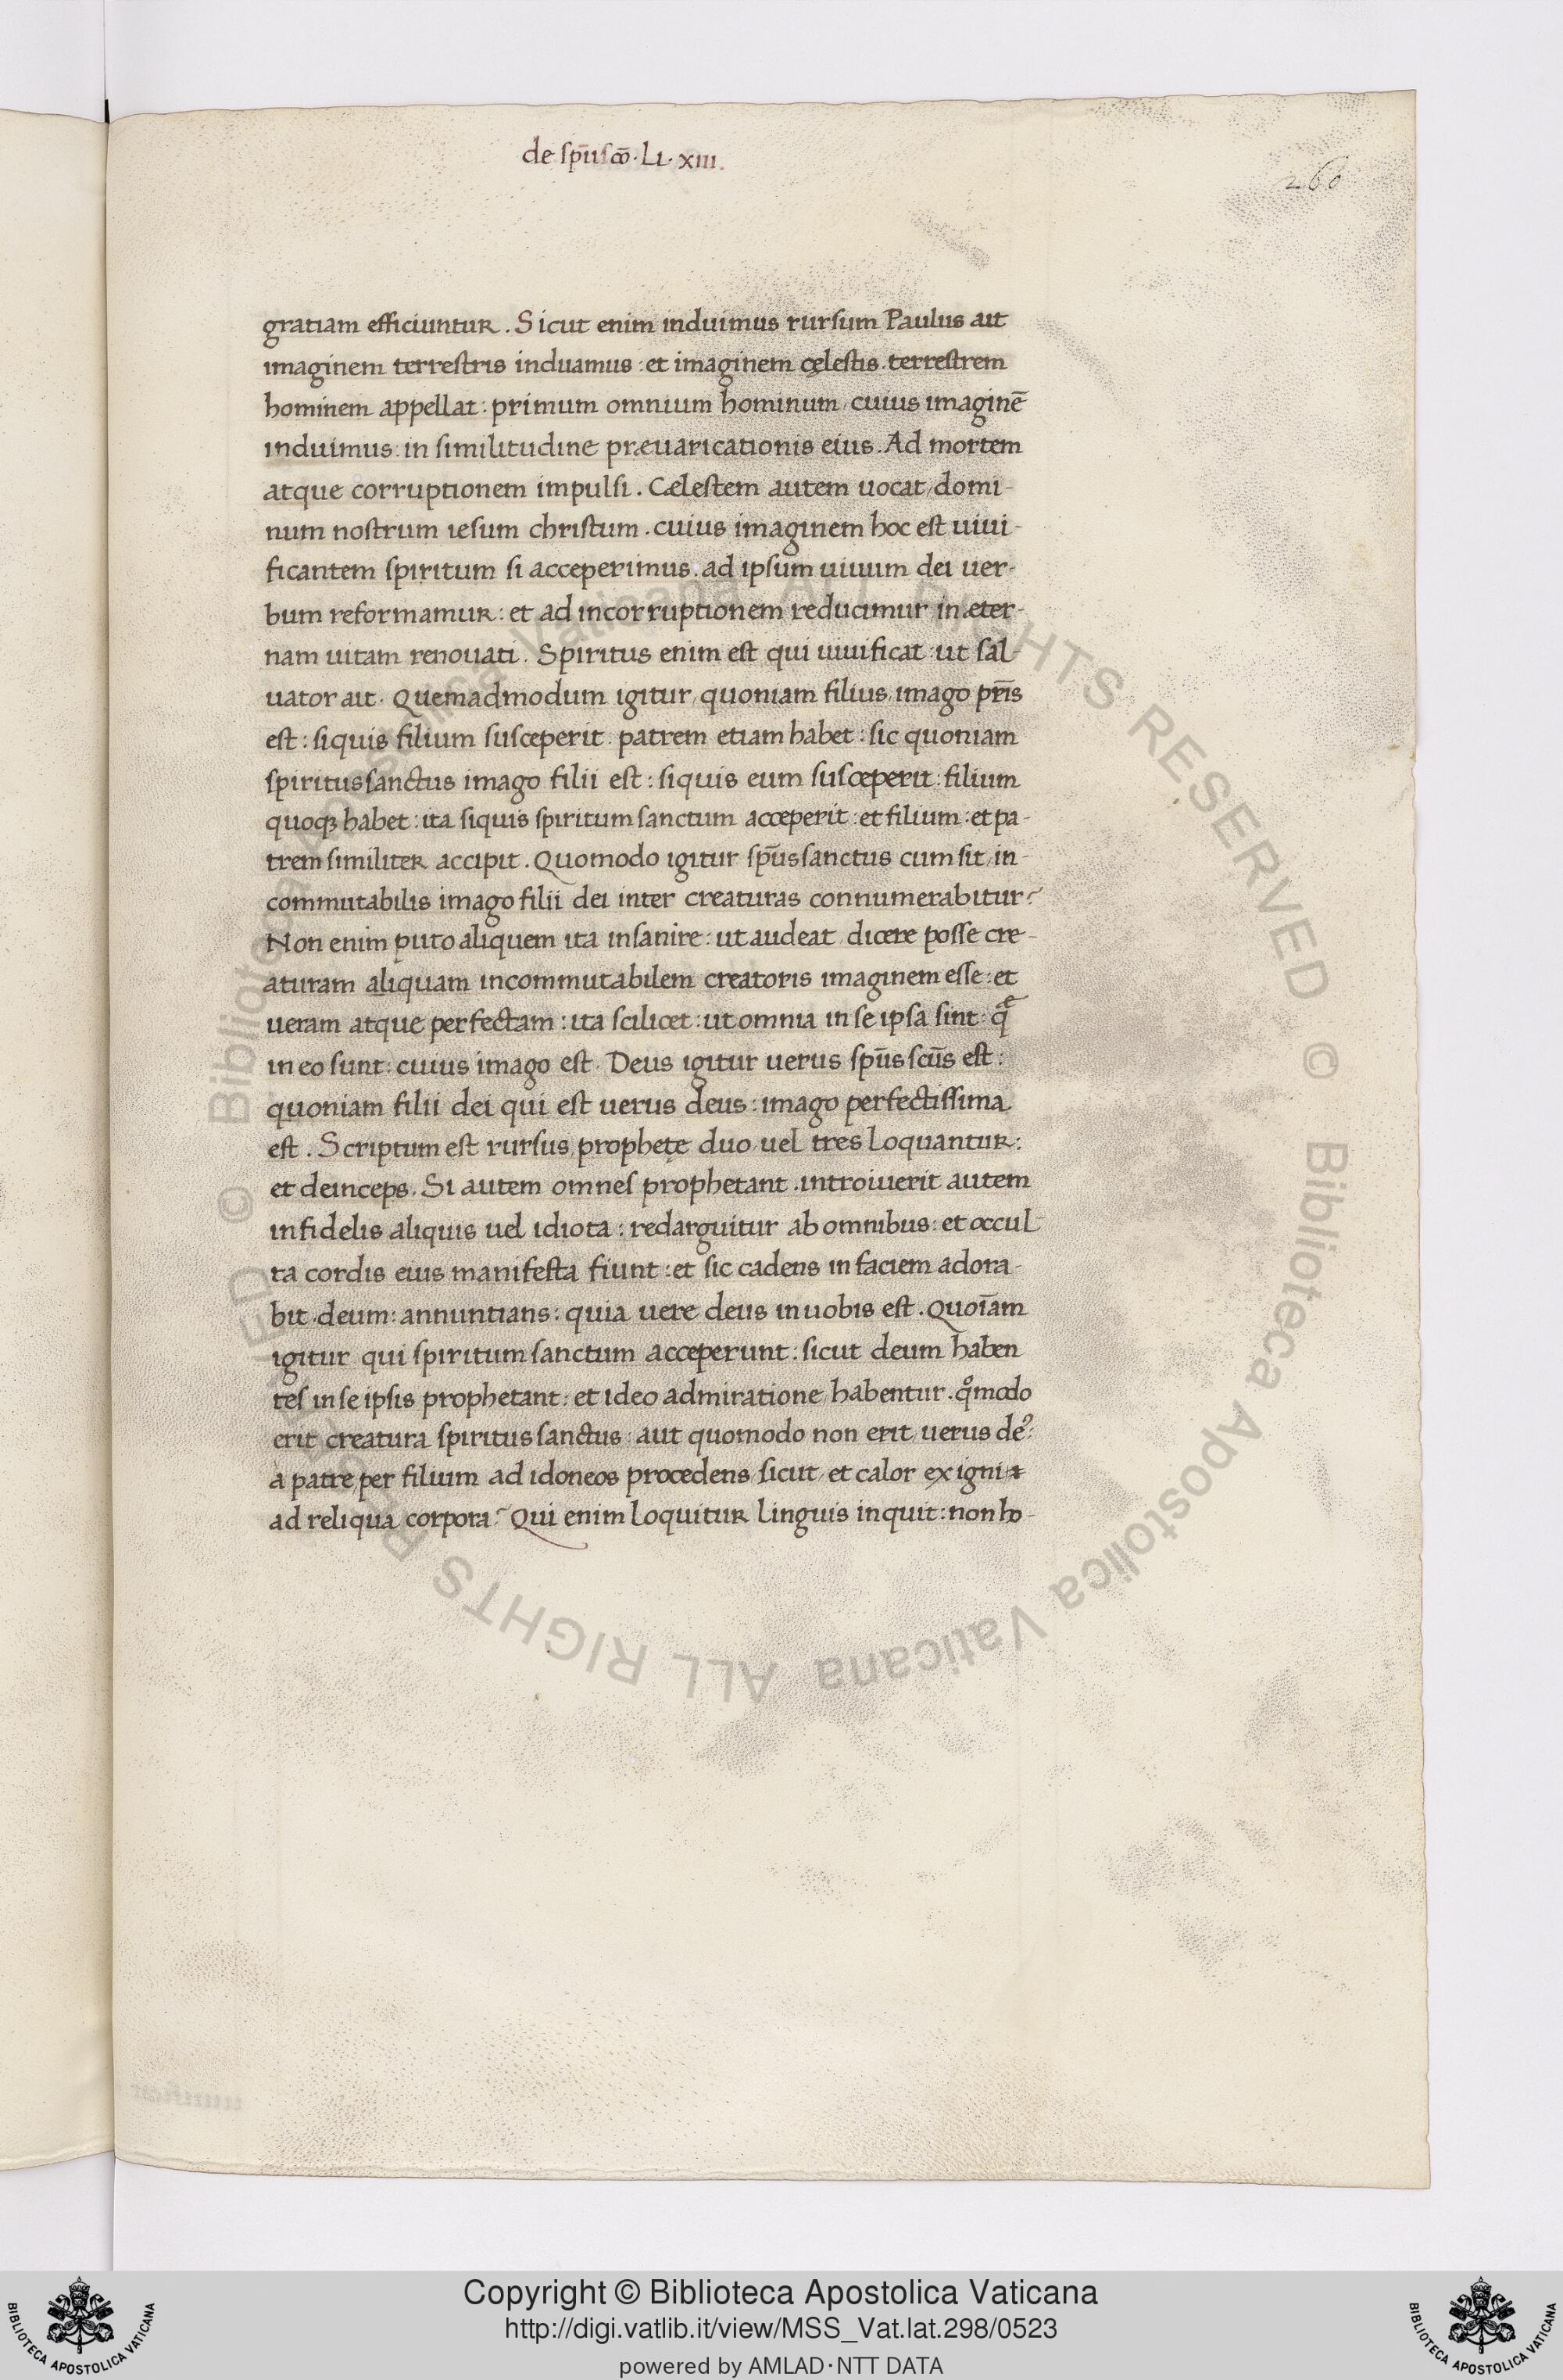 de sp̄u sc̄o · Li · xiii.
260
gratiam efficiuntur. Sicut enim induimus rursum Paulus ait
imaginem terrestris induamus: et imaginem cęlestis. terrestrem
hominem appellat: primum omnium hominum, cuius imaginē
induimus: in similitudine præuaricationis eius. Ad mortem
atque corruptionem impulsi. Cælestem autem uocat, domi-
num nostrum iesum christum. cuius imaginem hoc est uiui-
ficantem spiritum si acceperimus. ad ipsum uiuum dei uer-
bum reformamur: et ad incorruptionem reducimur in æter-
nam uitam renouati. Spiritus enim est qui uiuificat: ut sal-
uator ait. Quemadmodum igitur, quoniam filius, imago pr̄is
est: siquis filium susceperit. patrem etiam habet: sic quoniam
spiritus sanctus imago filii est: siquis eum susceperit: filium
quoqꝫ habet: ita siquis spiritum sanctum acceperit: et filium: et pa-
trem similiter accipit. Quomodo igitur sp̄us sanctus cum sit, in-
commutabilis imago filii dei inter creaturas connumerabitur?
Non enim puto aliquem ita insanire: ut audeat, dicere posse cre-
aturam aliquam incommutabilem creatoris imaginem esse: et
ueram atque perfectam: ita scilicet: ut omnia in se ipsa sint: qᷓ
in eo sunt: cuius imago est. Deus igitur uerus sp̄us sc̄us est:
quoniam filii dei qui est uerus deus: imago perfectissima
est. Scriptum est rursus, prophetę duo, uel tres loquantur:
et deinceps. Si autem omnes prophetant. introiuerit autem
infidelis aliquis uel idiota: redarguitur ab omnibus: et occul-
ta cordis eius manifesta fiunt: et sic cadens in faciem adora-
bit. deum: annuntians: quia uere deus in uobis est. Quoīam
igitur qui spiritum sanctum acceperunt: sicut deum haben
tes in se ipsis prophetant: et ideo admiratione, habentur. qͦmodo
erit creatura spiritus sanctus: aut quomodo non erit, uerus deꝰ:
a patre, per filium ad idoneos procedens, sicut, et calor ex igni
ad reliqua corpora? Qui enim loquitur linguis inquit: non ho-
© Biblioteca Apostolica Vaticana ALL RIGHTS RESERVED © Biblioteca Apostolica Vaticana ALL RIGHTS RESERVED
Copyright © Biblioteca Apostolica Vaticana
http://digi.vatlib.it/view/MSS_Vat.lat.298/0523
powered by AMLAD·NTT DATA
BIBLIOTECA APOSTOLICA VATICANA
BIBLIOTECA APOSTOLICA VATICANA